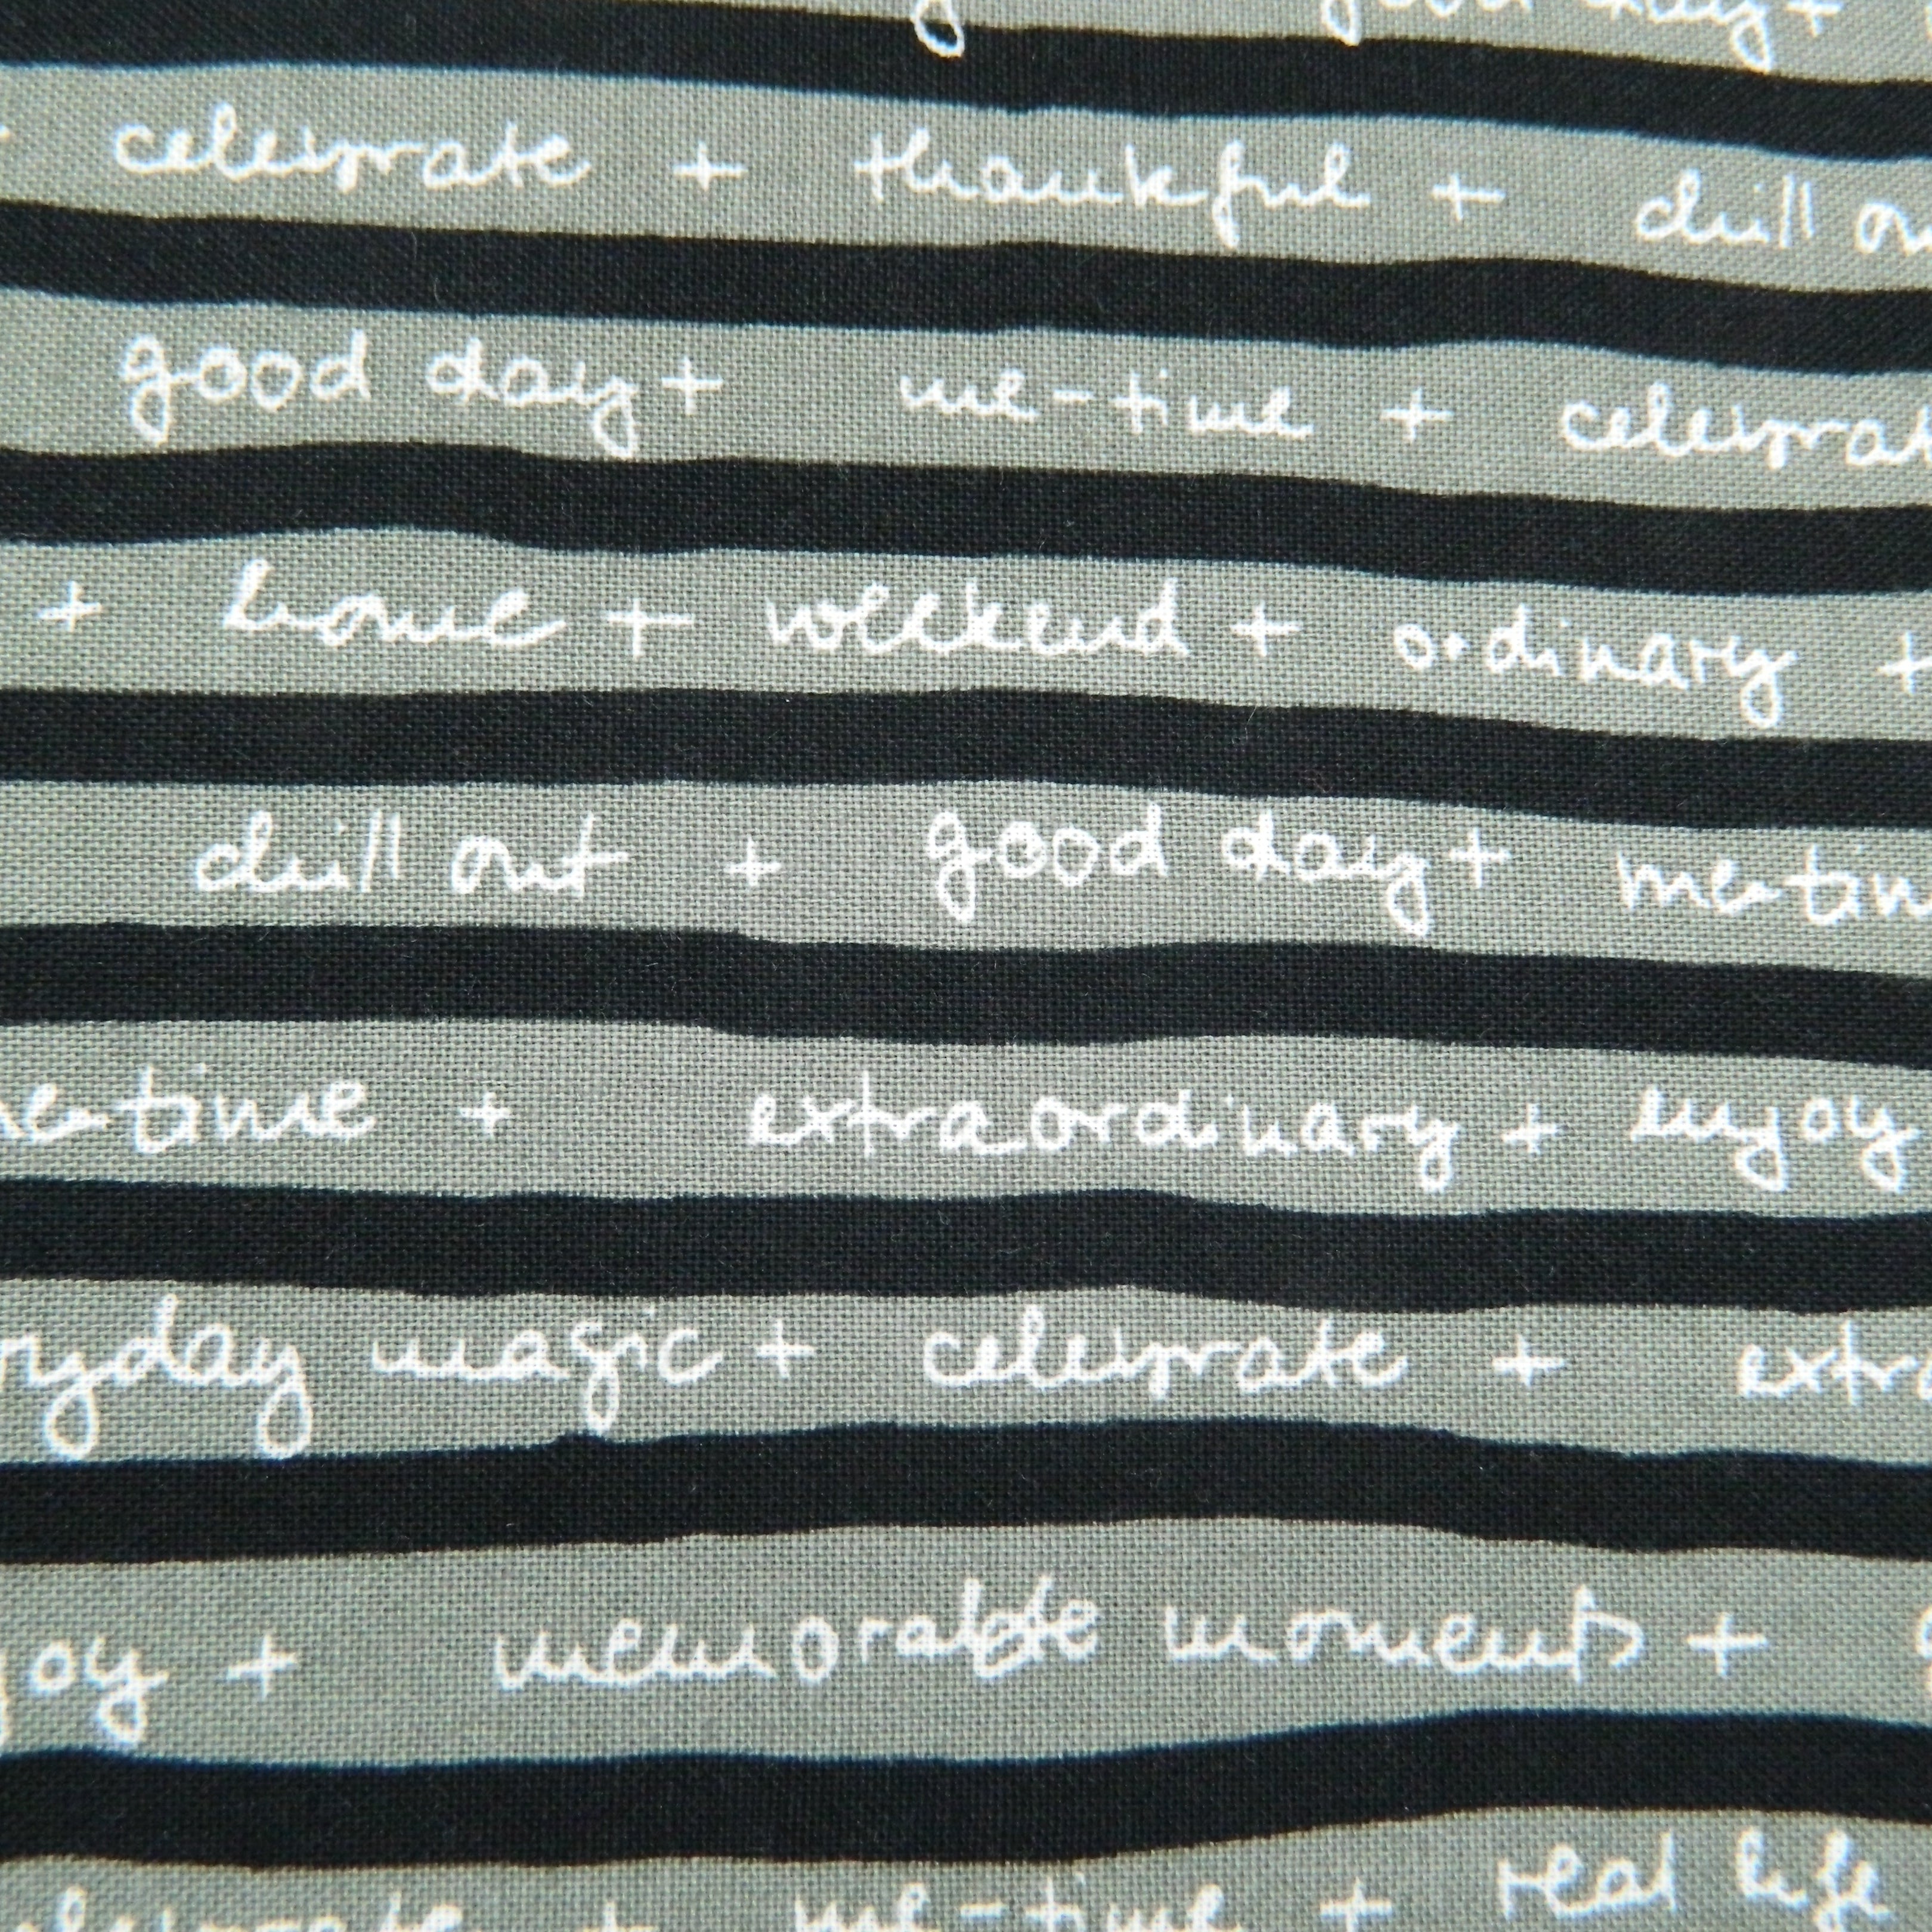 good day +
celebrate + thankful + chill ou
good day + me-time + celebrat
+ home + weekend + ordinary +
chill out + good day + me-tim
me-time + extraordinary + enjoy
ryday magic + celebrate + extra
joy + memorable moments +
elebrate + me-time + real life